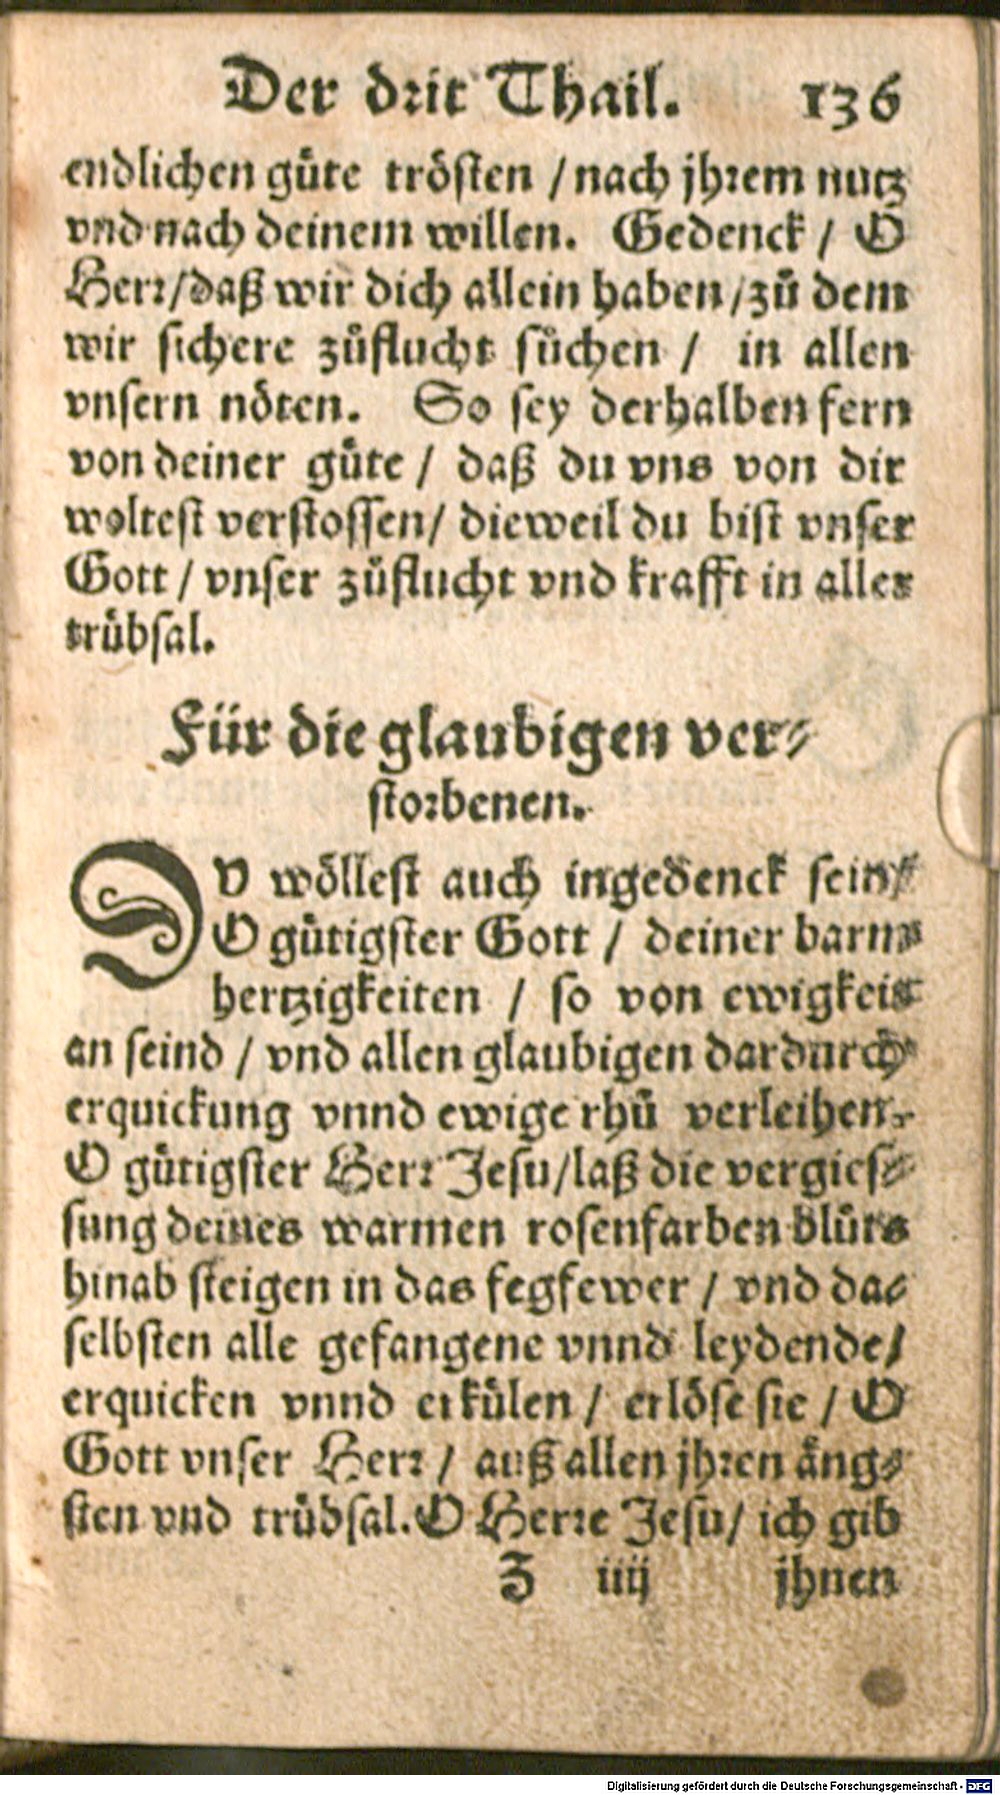 Der drit Thail. 136
endlichen guͤte troͤsten / nach jhrem nutz
vnd nach deinem willen. Gedenck / O
Herr / daß wir dich allein haben / zuͦ dem
wir sichere zuͦflucht suͦchen / in allen
vnsern noͤten. So sey derhalben fern
von deiner guͤte / daß du vns von dir
woltest verstossen / dieweil du bist vnser
Gott / vnser zuͦflucht vnd krafft in aller
truͤbsal.
Für die glaubigen ver⸗
storbenen.
DV woͤllest auch ingedenck sein /
O guͤtigster Gott / deiner barm⸗
hertzigkeiten / so von ewigkeit
an seind / vnd allen glaubigen dardurch
erquickung vnnd ewige rhuͦ verleihen.
O guͤtigster Herr Jesu / laß die vergies⸗
sung deines warmen rosenfarben bluͦts
hinab steigen in das fegfewer / vnd da⸗
selbsten alle gefangene vnnd leydende /
erquicken vnnd erkuͤlen / erloͤse sie / O
Gott vnser Herr / auß allen jhren aͤng⸗
sten vnd truͤbsal. O Herre Jesu / ich gib
Z iiij jhnen
Digitalisierung gefördert durch die Deutsche Forschungsgemeinschaft - DFG